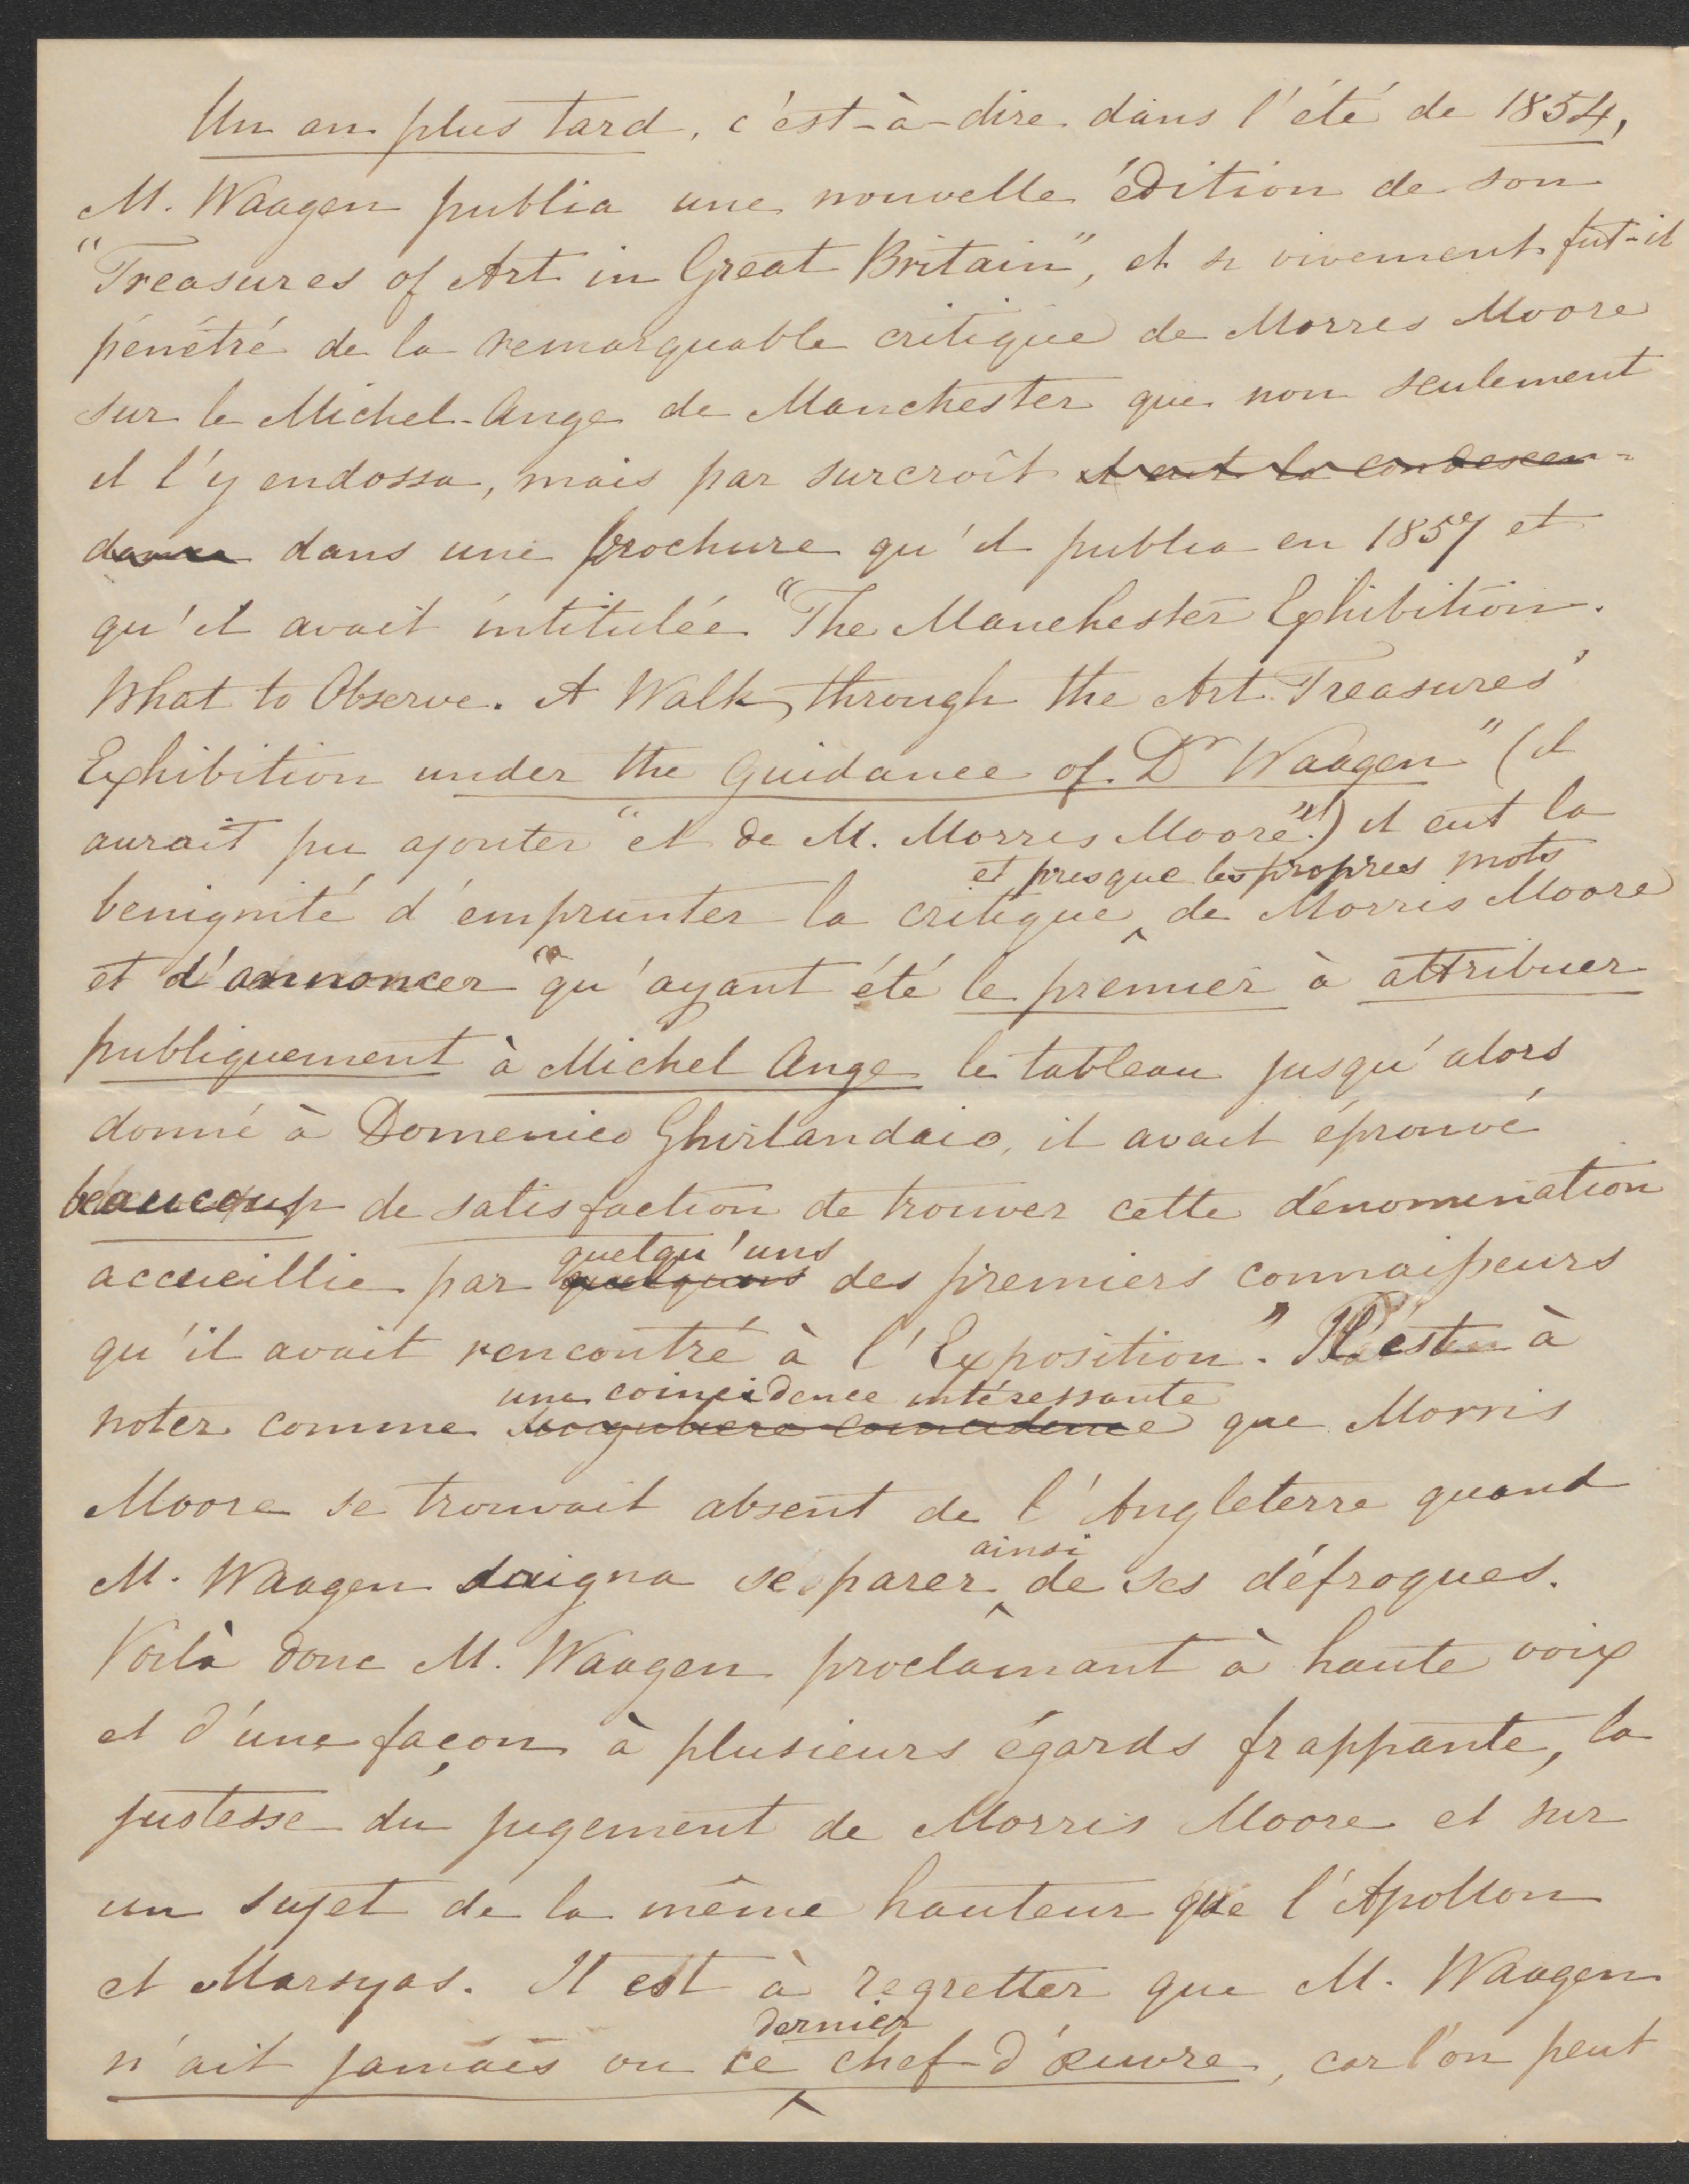 Un an plus tard, c'est-à-dire dans l'été de 1854,
M. Waagen publia une nouvelle édition de son
"Treasures of Art in Great Britain", et si vivement fut-il
pénétré de la remarquable critique de Morris Moore
sur le Michel-Ange de Manchester que non seulement
il l'y endossa, mais par surcroît il eut la condescen-
dance dans une brochure qu'il publia en 1857 et
qu'il avait intitulée "The Manchester Exhibition.
What to Observe. A Walk through the Art Treasures'
Exhibition under the Guidance of Dr Waagen" (il
aurait pu ajouter "et de M. Morris Moore"!) il eut la
et presque les propres mots
benignité d'emprunter la critique de Morris Moore
et d'annoncer "qu'ayant été le premier à attribuer
publiquement à Michel Ange le tableau jusqu'alors
donné à Domenico Ghirlandaio, il avait éprouvé
beaucoup de satisfaction de trouver cette dénomination
quelqu'uns
accueillie par quelquuns des premiers connaisseurs
qu'il avait rencontré à l'Exposition." Il est à
une coincidence intéressante
noter comme singuliere coincidence que Morris
Moore se trouvait absent de l'Angleterre quand
ainsi
M. Waagen daigna se parer de ses défroques.
Voilà donc M. Waagen proclamant à haute voix
et d'une façon à plusieurs égards frappante, la
justesse du jugement de Morris Moore et sur
un sujet de la même hauteur que l'Apollon
et Marsyas. Il est à regretter que M. Waagen
dernier
n'ait jamais vu ce chef-d'œuvre, car l'on peut